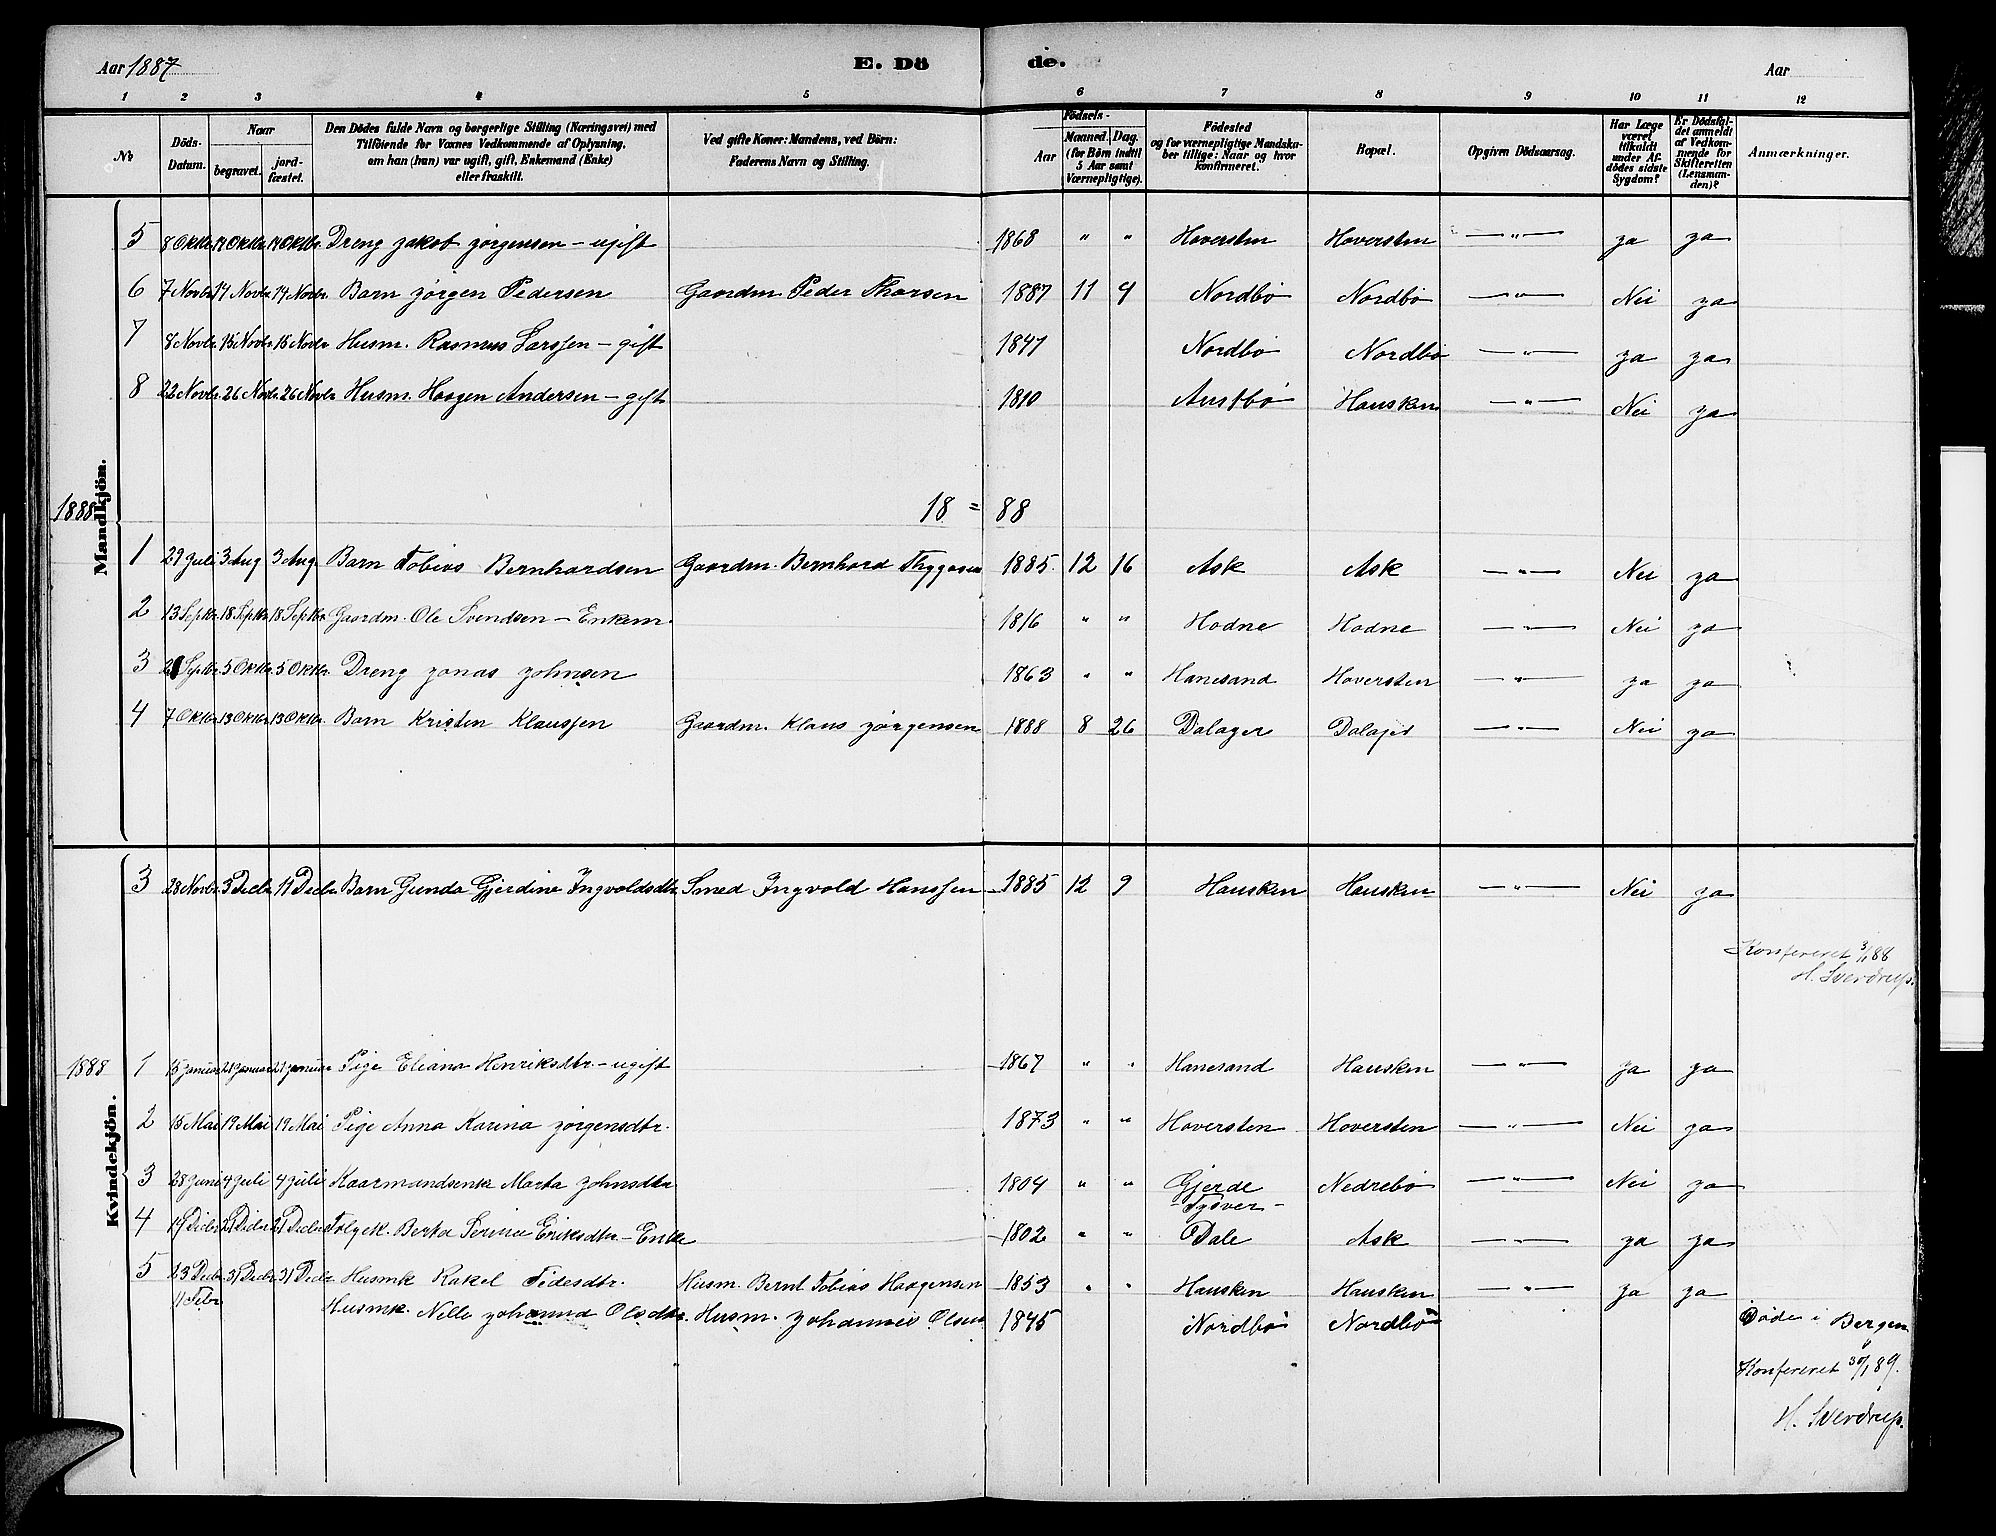 Aar 1887 E. Dö de. Aar
1 2 3 4 5 6 7 8 9 10 11 12
No Döds-Datum. Naar begravet. jordfæstet. Den Dödes fulde Navn og borgerlige Stilling (Næringsvei) med Tilföiende for Voxnes Vedkommende af Oplysning, om han (hun) var ugift, gift, Enkemand (Enke) eller fraskilt. Ved gifte Koner: Mandens, ved Börn: Faderens Navn og Stilling. Födsels- Aar Maaned. Dag. (for Börn indtil 5 Aar samt Værnepligtige). Födested og for værnepligtige Mandskaber tillige: Naar og hvor konfirmeret. Bopæl. Opgiven Dödsaarsag. Har Læge været tilkaldt under Afdödes sidste Sygdom? Er Dödsfaldet anmeldt af Vedkommende for Skifteretten (Lensmanden)? Anmærkninger.
Mandkjön.
5 8 Oktbr. 14 Oktbr. 14 Oktbr. Dreng Jakob Jörgensen – ugift 1868 " " Hoversten Hoversten —"— ja ja
6 7 Novbr. 14 Novbr. 14 Novbr. Barn Jörgen Pedersen Gaardm. Peder Thorsen 1887 11 4 Nordbö Nordbö —"— Nei ja
7 8 Novbr. 15 Novbr. 15 Novbr. Husm. Rasmus Larssen – gift 1847 Nordbö Nordbö —"— ja ja
8 22 Novbr. 26 Novbr. 26 Novbr. Husm. Haagen Andersen – gift 1810 Austbö Hausken —"— Nei ja
1888 18 = 88
1 29 Juli 3 Aug 3 Aug. Barn Tobias Bernhardsen Gaardm. Bernhard Thygesen 1885 12 16 Ask Ask —"— Nei ja
2 13 Septbr. 18 Septbr. 18 Septbr. Gaardm. Ole Svendsen – Enkem. 1816 " " Hodne Hodne —"— Nei ja
3 Septbr. 5 Oktbr. 5 Oktbr. Dreng Jonas Johnsen 1863 " " Hanesand Hoversten —"— ja ja
4 7 Oktbr. 13 Oktbr. 13 Oktbr. Barn Kristen Klaussen Gaardm. Klaus Jörgensen 1888 8 26 Dalager Dalager —"— Nei ja
Kvindekjön.
3 28 Novbr. 3 Decbr. 11 Decbr. Barn Gunda Gjerdine Ingvoldsdtr. Smed Ingvold Hanssen 1885 12 9 Hausken Hausken —"— Nei ja
Konfereret 3/1 88
H. Sverdrup.
1888 1 15 Januar 21 Januar 21 Januar Pige Eliana Henriksdtr. – ugift 1867 " " Hanesand Hausken —"— ja ja
2 15 Mai 19 Mai 19 Mai Pige Anna Karina Jörgensdtr. 1873 " " Hoversten Hoversten —"— Nei ja
3 28 Juni 4 Juli 4 Juli Kaarmandsenke Marta Johnsdtr 1804 " " Gjerde Nedrebö —"— Nei ja
– Tysver –
4 14 Decbr. 21 Decbr. 21 Decbr. Folgek. Berta Serine Eriksdtr – Enke 1802 " " Dale Ask —"— ja ja
5 23 Decbr. 31 Decbr. 31 Decbr. Husmk Rakel Tidesdtr. Husm. Bernt Tobias Haagensen 1853 " " Hausken Hausken —"— ja ja
11 Febr. Husmk. Nelle Johanna Olsdtr. Husm. Johannes Olsen 1845 Nordbö Nordbö Döde i Bergen
Konfereret 30/1 89.
H. Sverdrup.